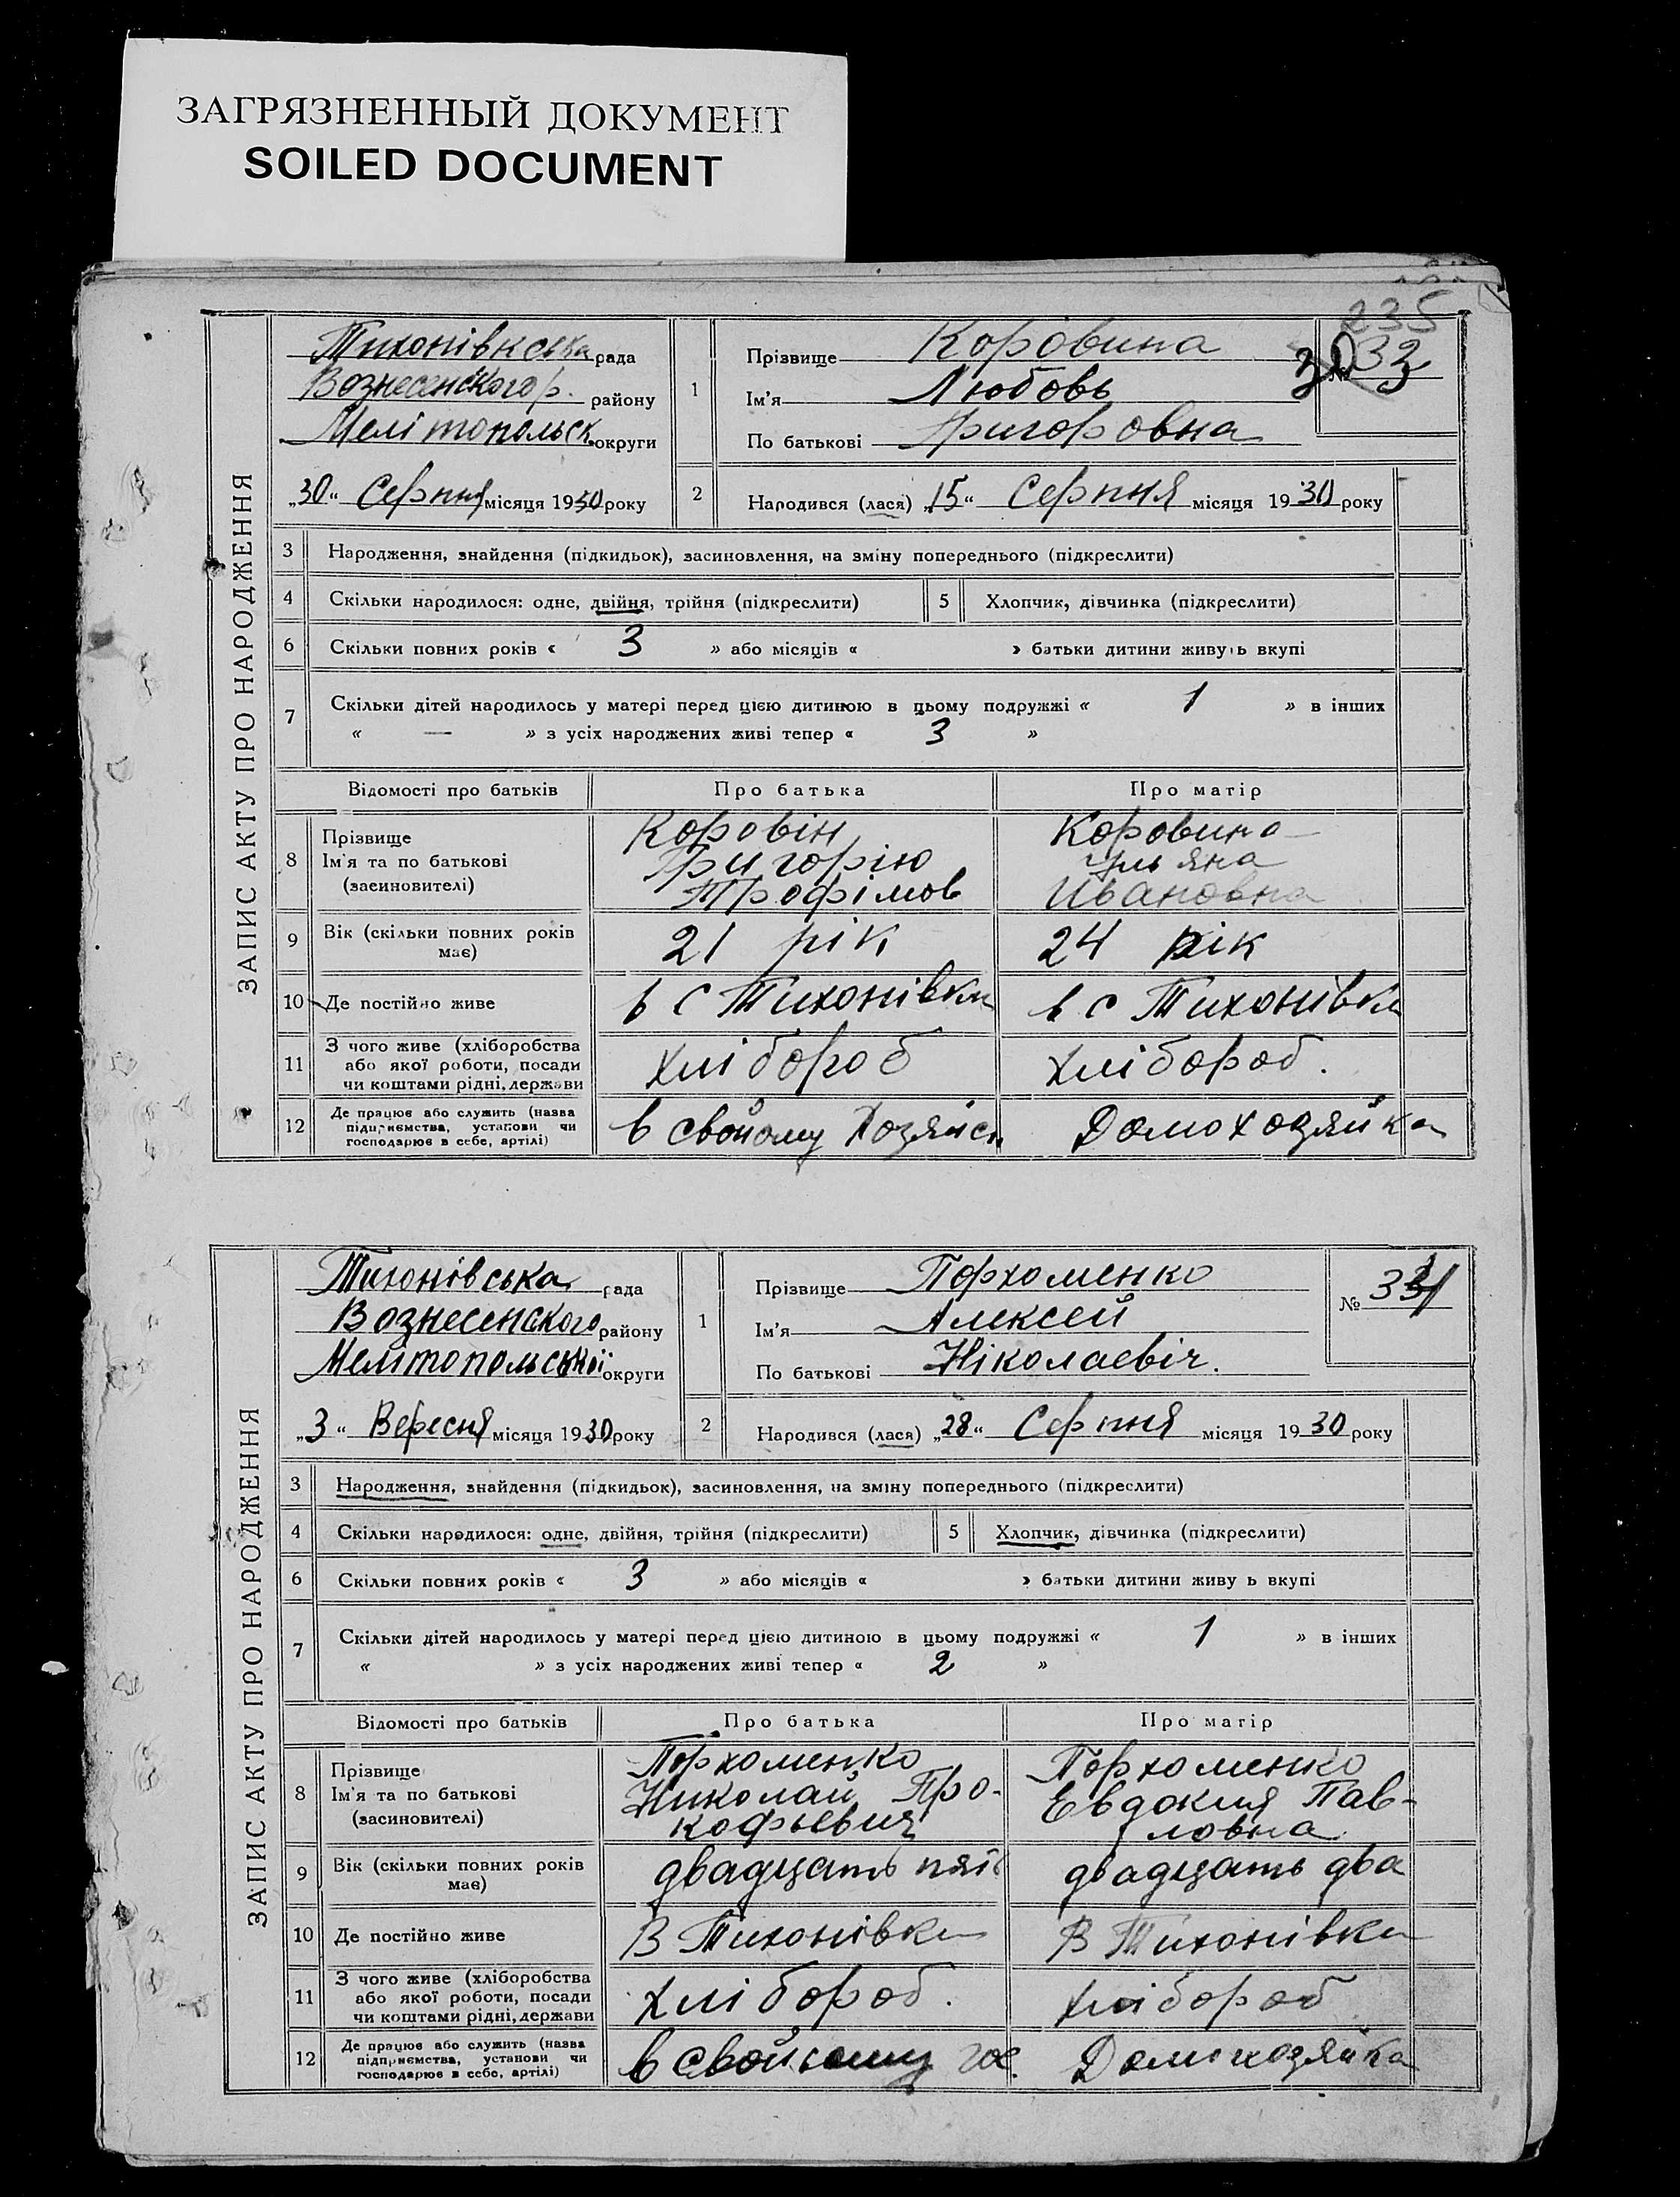 ЗАГРЯЗНЕННЫЙ ДОКУМЕНТ
SOILED DOCUMENT
235
ЗАПИС АКТУ ПРО НАРОДЖЕННЯ
Тихонівкська рада
Вознесенского р. району
Мелітопольск. округи
„30“ Серпня місяця 1930 року
1
Прізвище Коровина
Ім'я Любовь
По батькові Григоровна
№ 33
2 Народився (лася) „15“ Серпня місяця 1930 року
3 Народження, знайдення (підкидьок), засиновлення, на зміну попереднього (підкреслити)
4 Скільки народилося: одне, двійня, трійня (підкреслити) 5 Хлопчик, дівчинка (підкреслити)
6 Скільки повних років « 3 » або місяців « » батьки дитини живуть вкупі
7 Скільки дітей народилось у матері перед цією дитиною в цьому подружжі « 1 » в інших
« — » з усіх народжених живі тепер « 3 »
Відомості про батьків Про батька Про матір
8 Прізвище Коровін Коровина
Ім'я та по батькові Григорію Ульяна
(засиновителі) Трофімов Ивановна
9 Вік (скільки повних років має) 21 рік 24 рік
10 Де постійно живе в с Тихонівки в с Тихонівки
11 З чого живе (хліборобства або якої роботи, посади чи коштами рідні, держави хлібороб хлібороб.
12 Де працює або служить (назва підприємства, установи чи господарює в себе, артілі) в свойому Хозяйсн Домохозяйка
ЗАПИС АКТУ ПРО НАРОДЖЕННЯ
Тихонівська рада
Вознесенского району
Мелітопольської округи
„3“ Вересня місяця 1930 року
1
Прізвище Порхоменко
Ім'я Алексей
По батькові Ніколаевіч.
№
2 Народився (лася) „28“ Серпня місяця 1930 року
3 Народження, знайдення (підкидьок), засиновлення, на зміну попереднього (підкреслити)
4 Скільки народилося: одне, двійня, трійня (підкреслити) 5 Хлопчик, дівчинка (підкреслити)
6 Скільки повних років « 3 » або місяців « » батьки дитини живу ь вкупі
7 Скільки дітей народилось у матері перед цією дитиною в цьому подружжі « 1 » в інших
« » з усіх народжених живі тепер « 2 »
Відомості про батьків Про батька Про матір
8 Прізвище Порхоменко Порхоменко
Ім'я та по батькові Николай Про- Евдокия Пав-
(засиновителі) кофьевич ловна
9 Вік (скільки повних років має) двадцать пять двадцать два
10 Де постійно живе В Тихонівки В Тихонівки
11 З чого живе (хліборобства або якої роботи, посади чи коштами рідні, держави хлібороб. хлібороб
12 Де працює або служить (назва підприємства, установи чи господарює в себе, артілі) в свойьому хоз. Домохозяйка